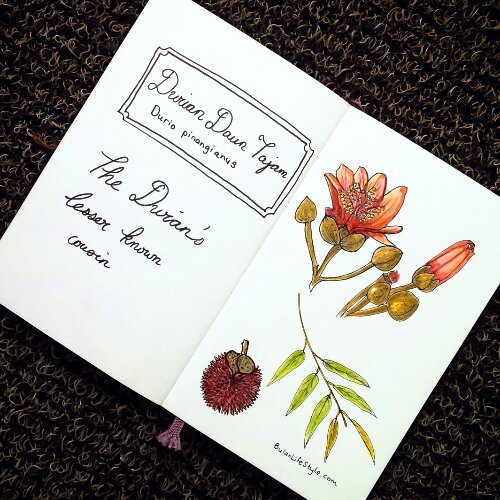 Durian Daun Tajam
Durio pinangianus
The Durian's
lesser known
cousin
BulanLifeStyle.com